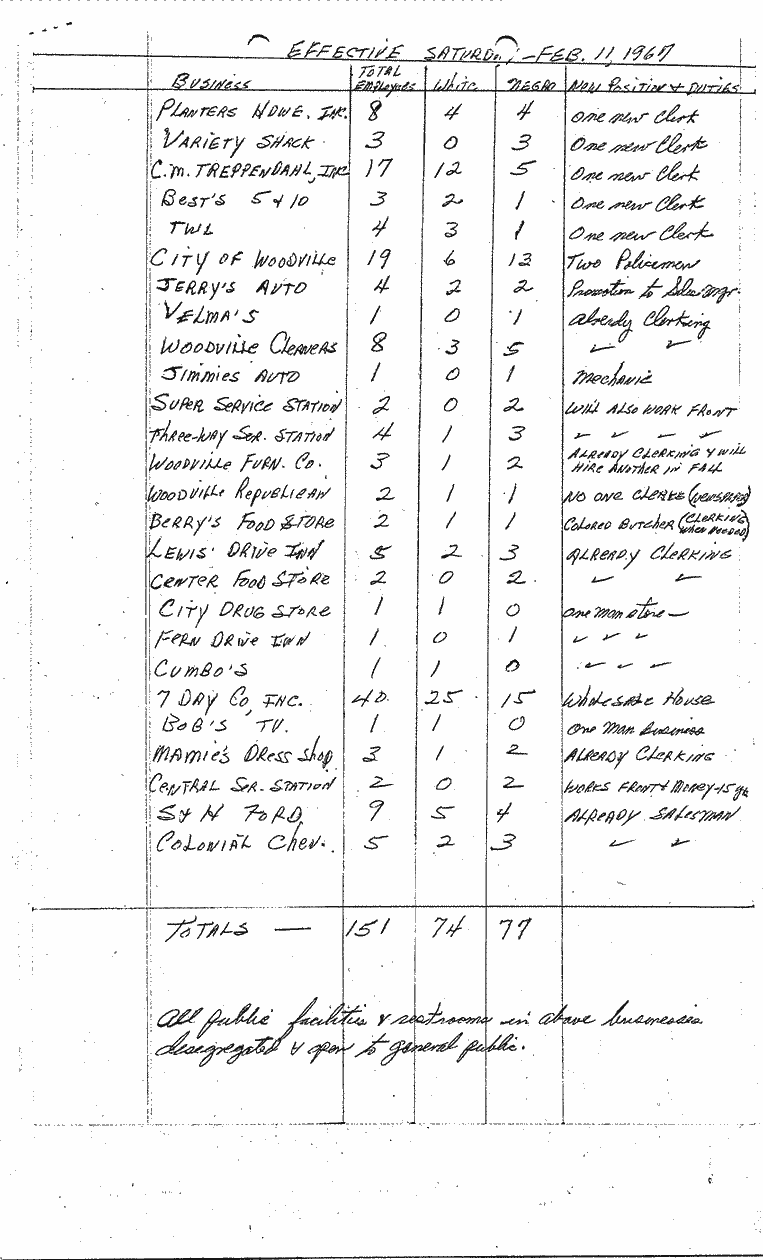 EFFECTIVE SATURDAY, - FEB. 11, 1967
BUSINESS TOTAL EMPLOYEES WHITE NEGRO NEW POSITION & DUTIES
PLANTERS HDWE. INC. 8 4 4 One new Clerk
VARIETY SHACK 3 0 3 One new Clerk
C.M. TREPPENDAHL, INC 17 12 5 One new Clerk
BEST'S 5 & 10 3 2 1 One new Clerk
TWL 4 3 1 One new Clerk
CITY OF WOODVILLE 19 6 13 Two Policemen
JERRY'S AUTO 4 2 2 Promotion to Sales Mgr.
VELMA'S 1 0 1 Already Clerking
WOODVILLE CLEANERS 8 3 5 " "
JIMMIES AUTO 1 0 1 MECHANIC
SUPER SERVICE STATION 2 0 2 WILL ALSO WORK FRONT
THREE-WAY SER. STATION 4 1 3 " " " "
WOODVILLE FURN. CO. 3 1 2 ALREADY CLERKING & WILL HIRE ANOTHER IN FALL
WOODVILLE REPUBLICAN 2 1 1 NO ONE CLERKS (NEWSPAPER)
BERRY'S FOOD STORE 2 1 1 COLORED BUTCHER (CLERKING WHEN NEEDED)
LEWIS' DRIVE INN 5 2 3 ALREADY CLERKING
CENTER FOOD STORE 2 0 2 " "
CITY DRUG STORE 1 1 0 One man store —
FERN DRIVE INN 1 0 1 " " "
CUMBO'S 1 1 0 " " "
7 DAY CO, INC. 40 25 15 WHOLESALE HOUSE
BOB'S TV. 1 1 0 ONE MAN BUSINESS
MAMIE'S DRESS SHOP 3 1 2 ALREADY CLERKING
CENTRAL SER. STATION 2 0 2 WORKS FRONT & MONEY-15 yrs
S & H FORD 9 5 4 ALREADY SALESMAN
COLONIAL CHEV. 5 2 3 " "
TOTALS — 151 74 77
All public facilities & restrooms in above businesses
desegregated & open to general public.